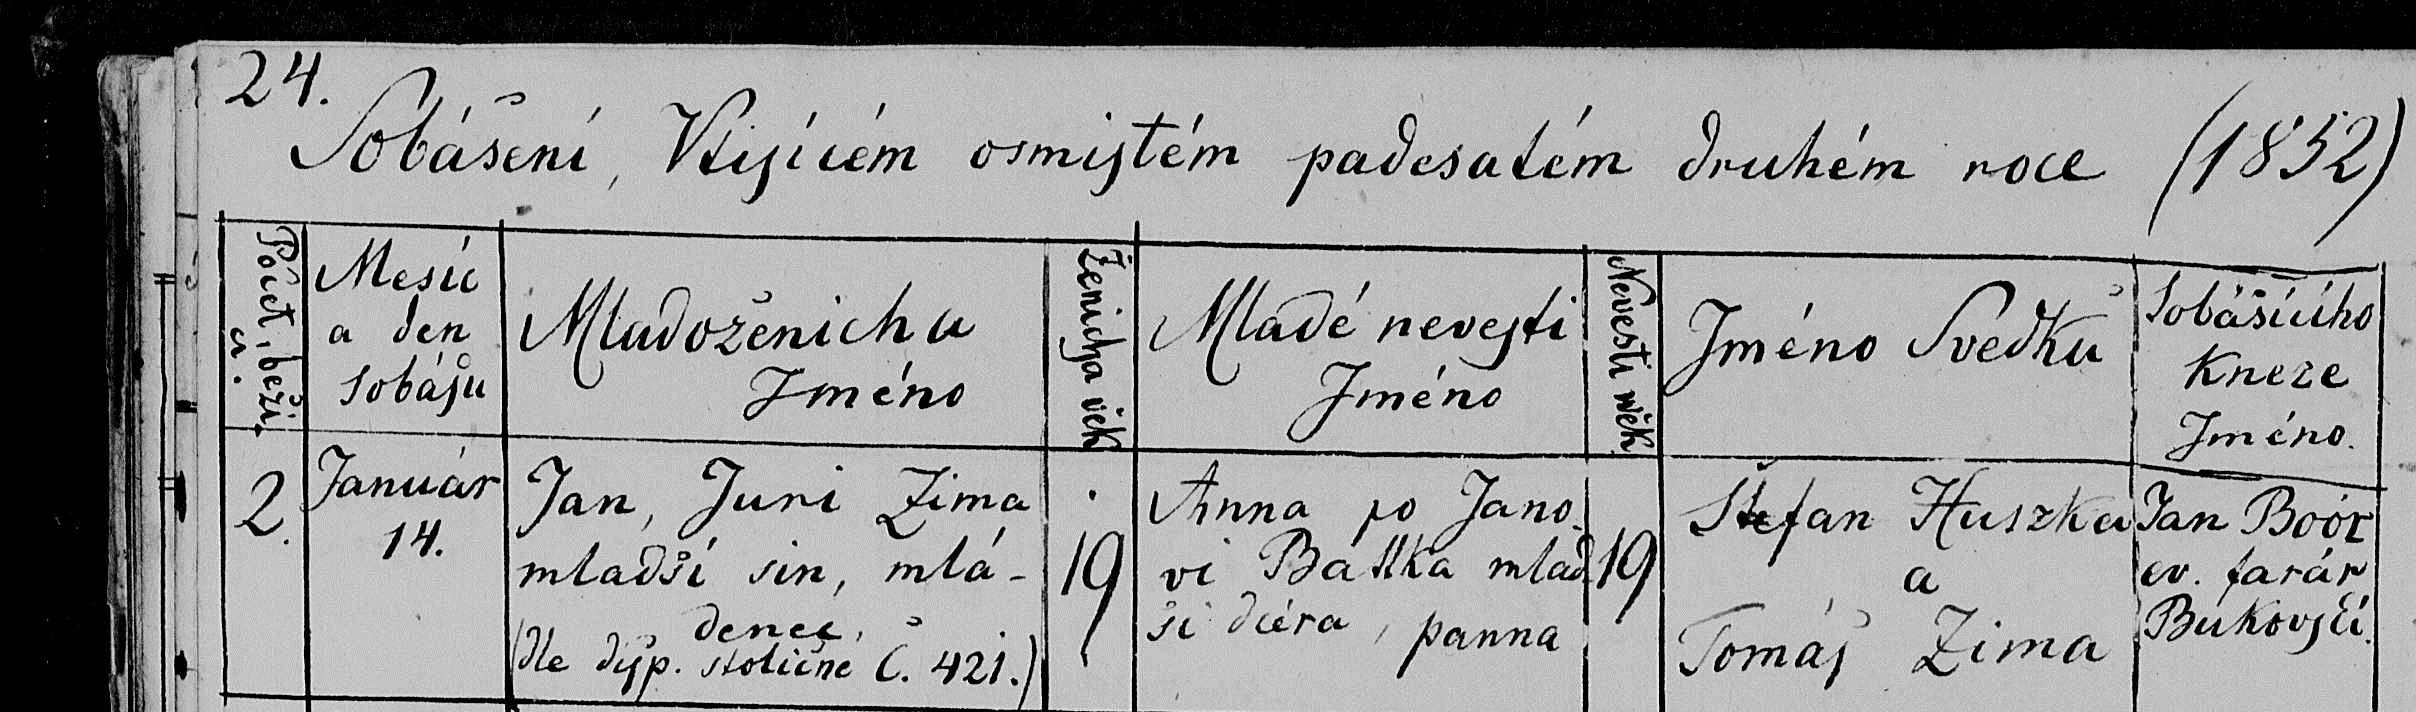 24.
Sobášení, Vtisícém osmistém padesatém druhém roce (1852)
Počet, beží.
cí.
Mesíc
a den
sobášu
Mladoženichu
Jméno
Ženicha vek
Mladé nevesti
Jméno
Nevesti wěk
Jméno Svedků
Sobášícího
Kneze
Jméno.
2.
Január
14.
Jan, Juri Zima
mladší sin, mlá-
denec,
(dle disp. stoličné Č. 421.)
19
Anna po Jano-
vi Battka mlad-
ši dcéra, panna
19
Štefan Huszka
a
Tomáš Zima
Jan Boór
ev. farár
Bukovskí.